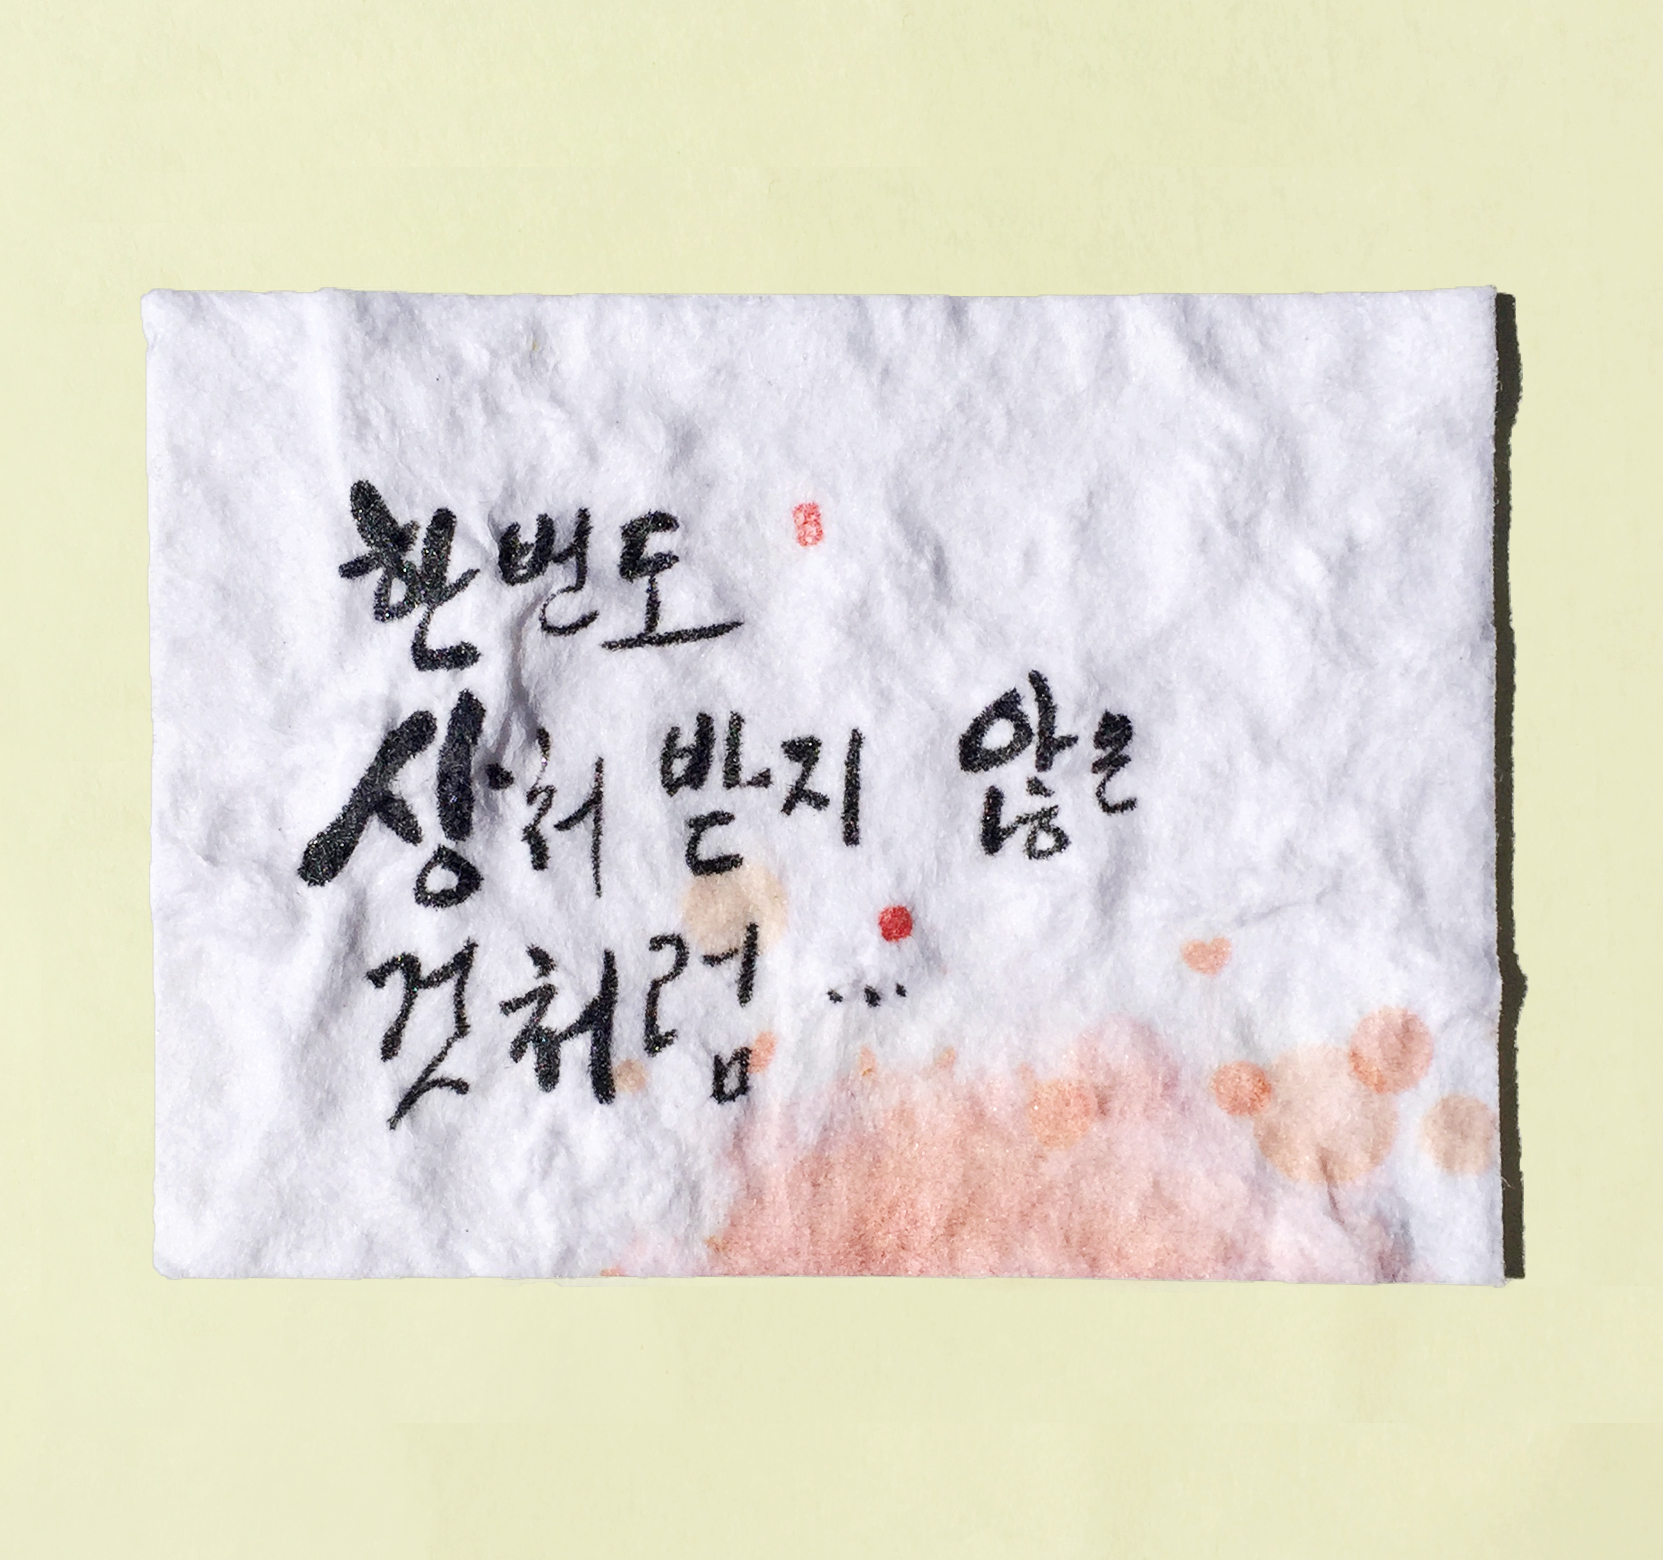 한번도
상처 받지 않은
것처럼...